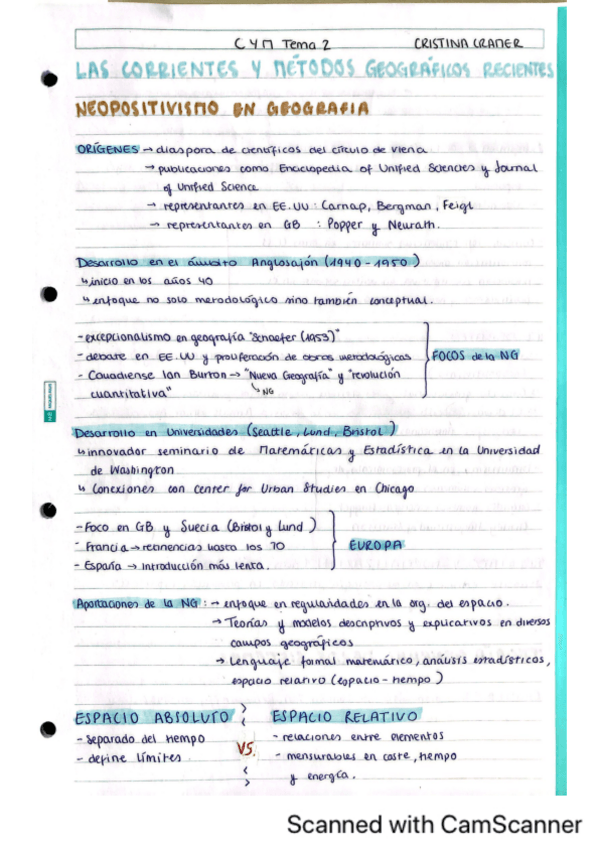 C Y M Tema 2 CRISTINA CRANER
LAS CORRIENTES Y MÉTODOS GEOGRÁFICOS RECIENTES
NEOPOSITIVISMO EN GEOGRAFIA
ORÍGENES → diaspora de científicos del círculo de Viena
→ publicaciones como Enciclopedia of Unified Sciencies y Journal
of Unified Science
→ representantes en EE.UU : Carnap, Bergman, Feigl
→ representantes en GB : Popper y Neurath.
Desarrollo en el ámbito Anglosajón (1940-1950)
↳ inicio en los años 40
↳ enfoque no solo metodológico sino también conceptual.
- excepcionalismo en geografía "Schaefer (1953)"
- debate en EE.UU y proliferación de obras metodológicas
- Canadiense Ian Burton → "Nueva Geografía" y "revolución
cuantitativa"
↘ NG
FOCOS de la NG
Desarrollo en Universidades (Seattle, Lund, Bristol)
↳ innovador seminario de Matemáticas y Estadística en la Universidad
de Washington
↳ Conexiones con Center for Urban Studies en Chicago
- Foco en GB y Suecia (Bristol y Lund)
- Francia → reticencias hasta los 70
- España → introducción más lenta.
EUROPA
Aportaciones de la NG : → enfoque en regularidades en la org. del espacio.
→ Teorías y modelos descriptivos y explicativos en diversos
campos geográficos
→ Lenguaje formal matemático, análisis estadísticos,
espacio relativo (espacio-tiempo)
ESPACIO ABSOLUTO
- separado del tiempo
- define límites
VS.
ESPACIO RELATIVO
- relaciones entre elementos
- mensurables en coste, tiempo
y energía.
Scanned with CamScanner